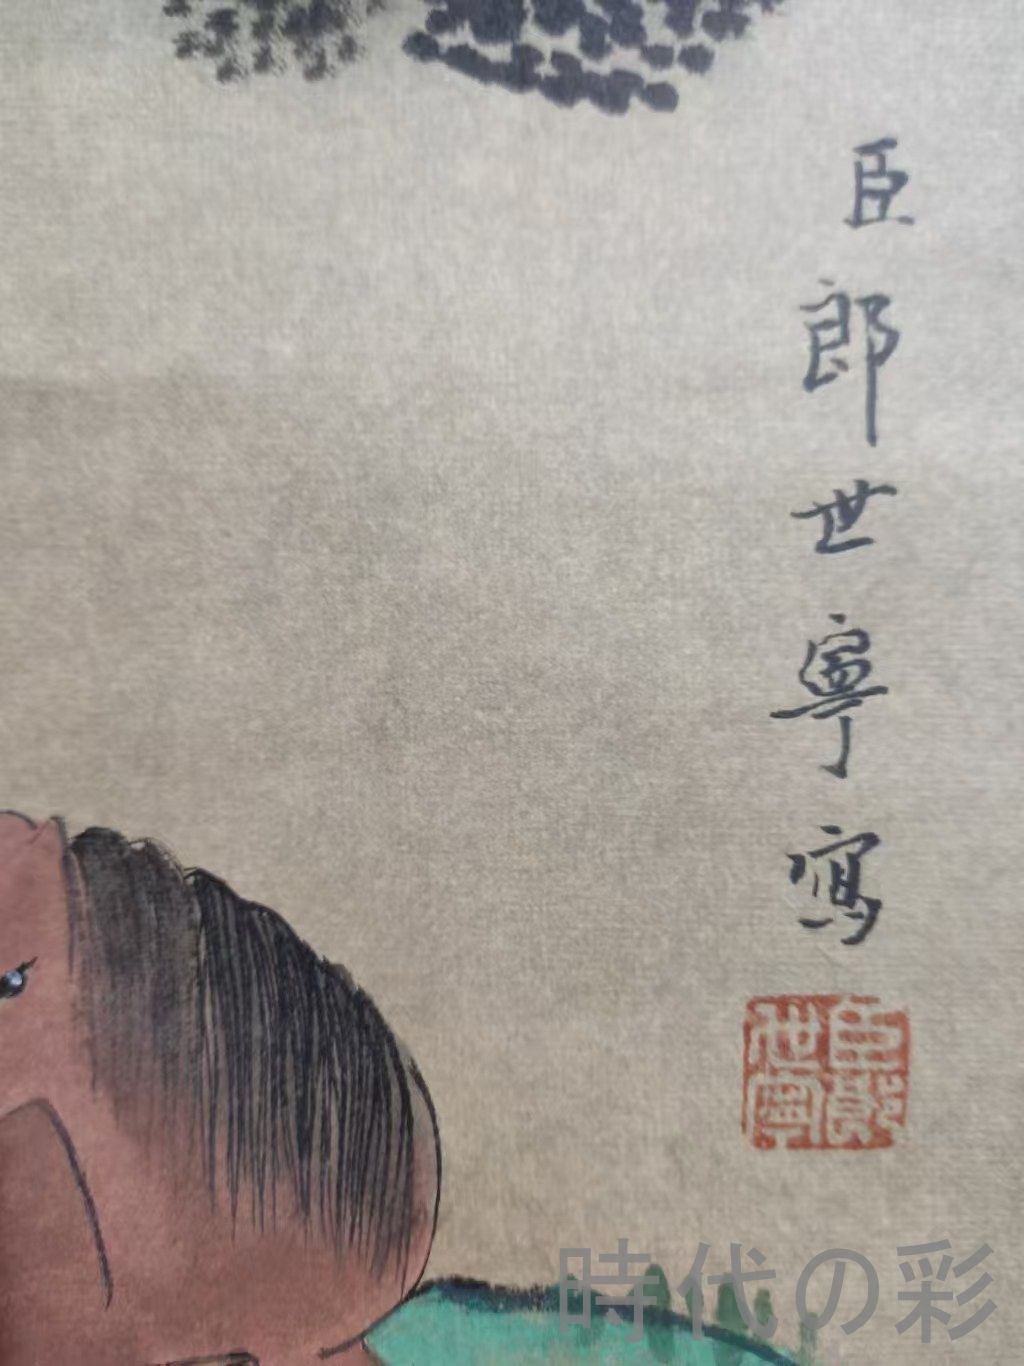 臣郎世寧寫
臣郎世寧
時代の彩